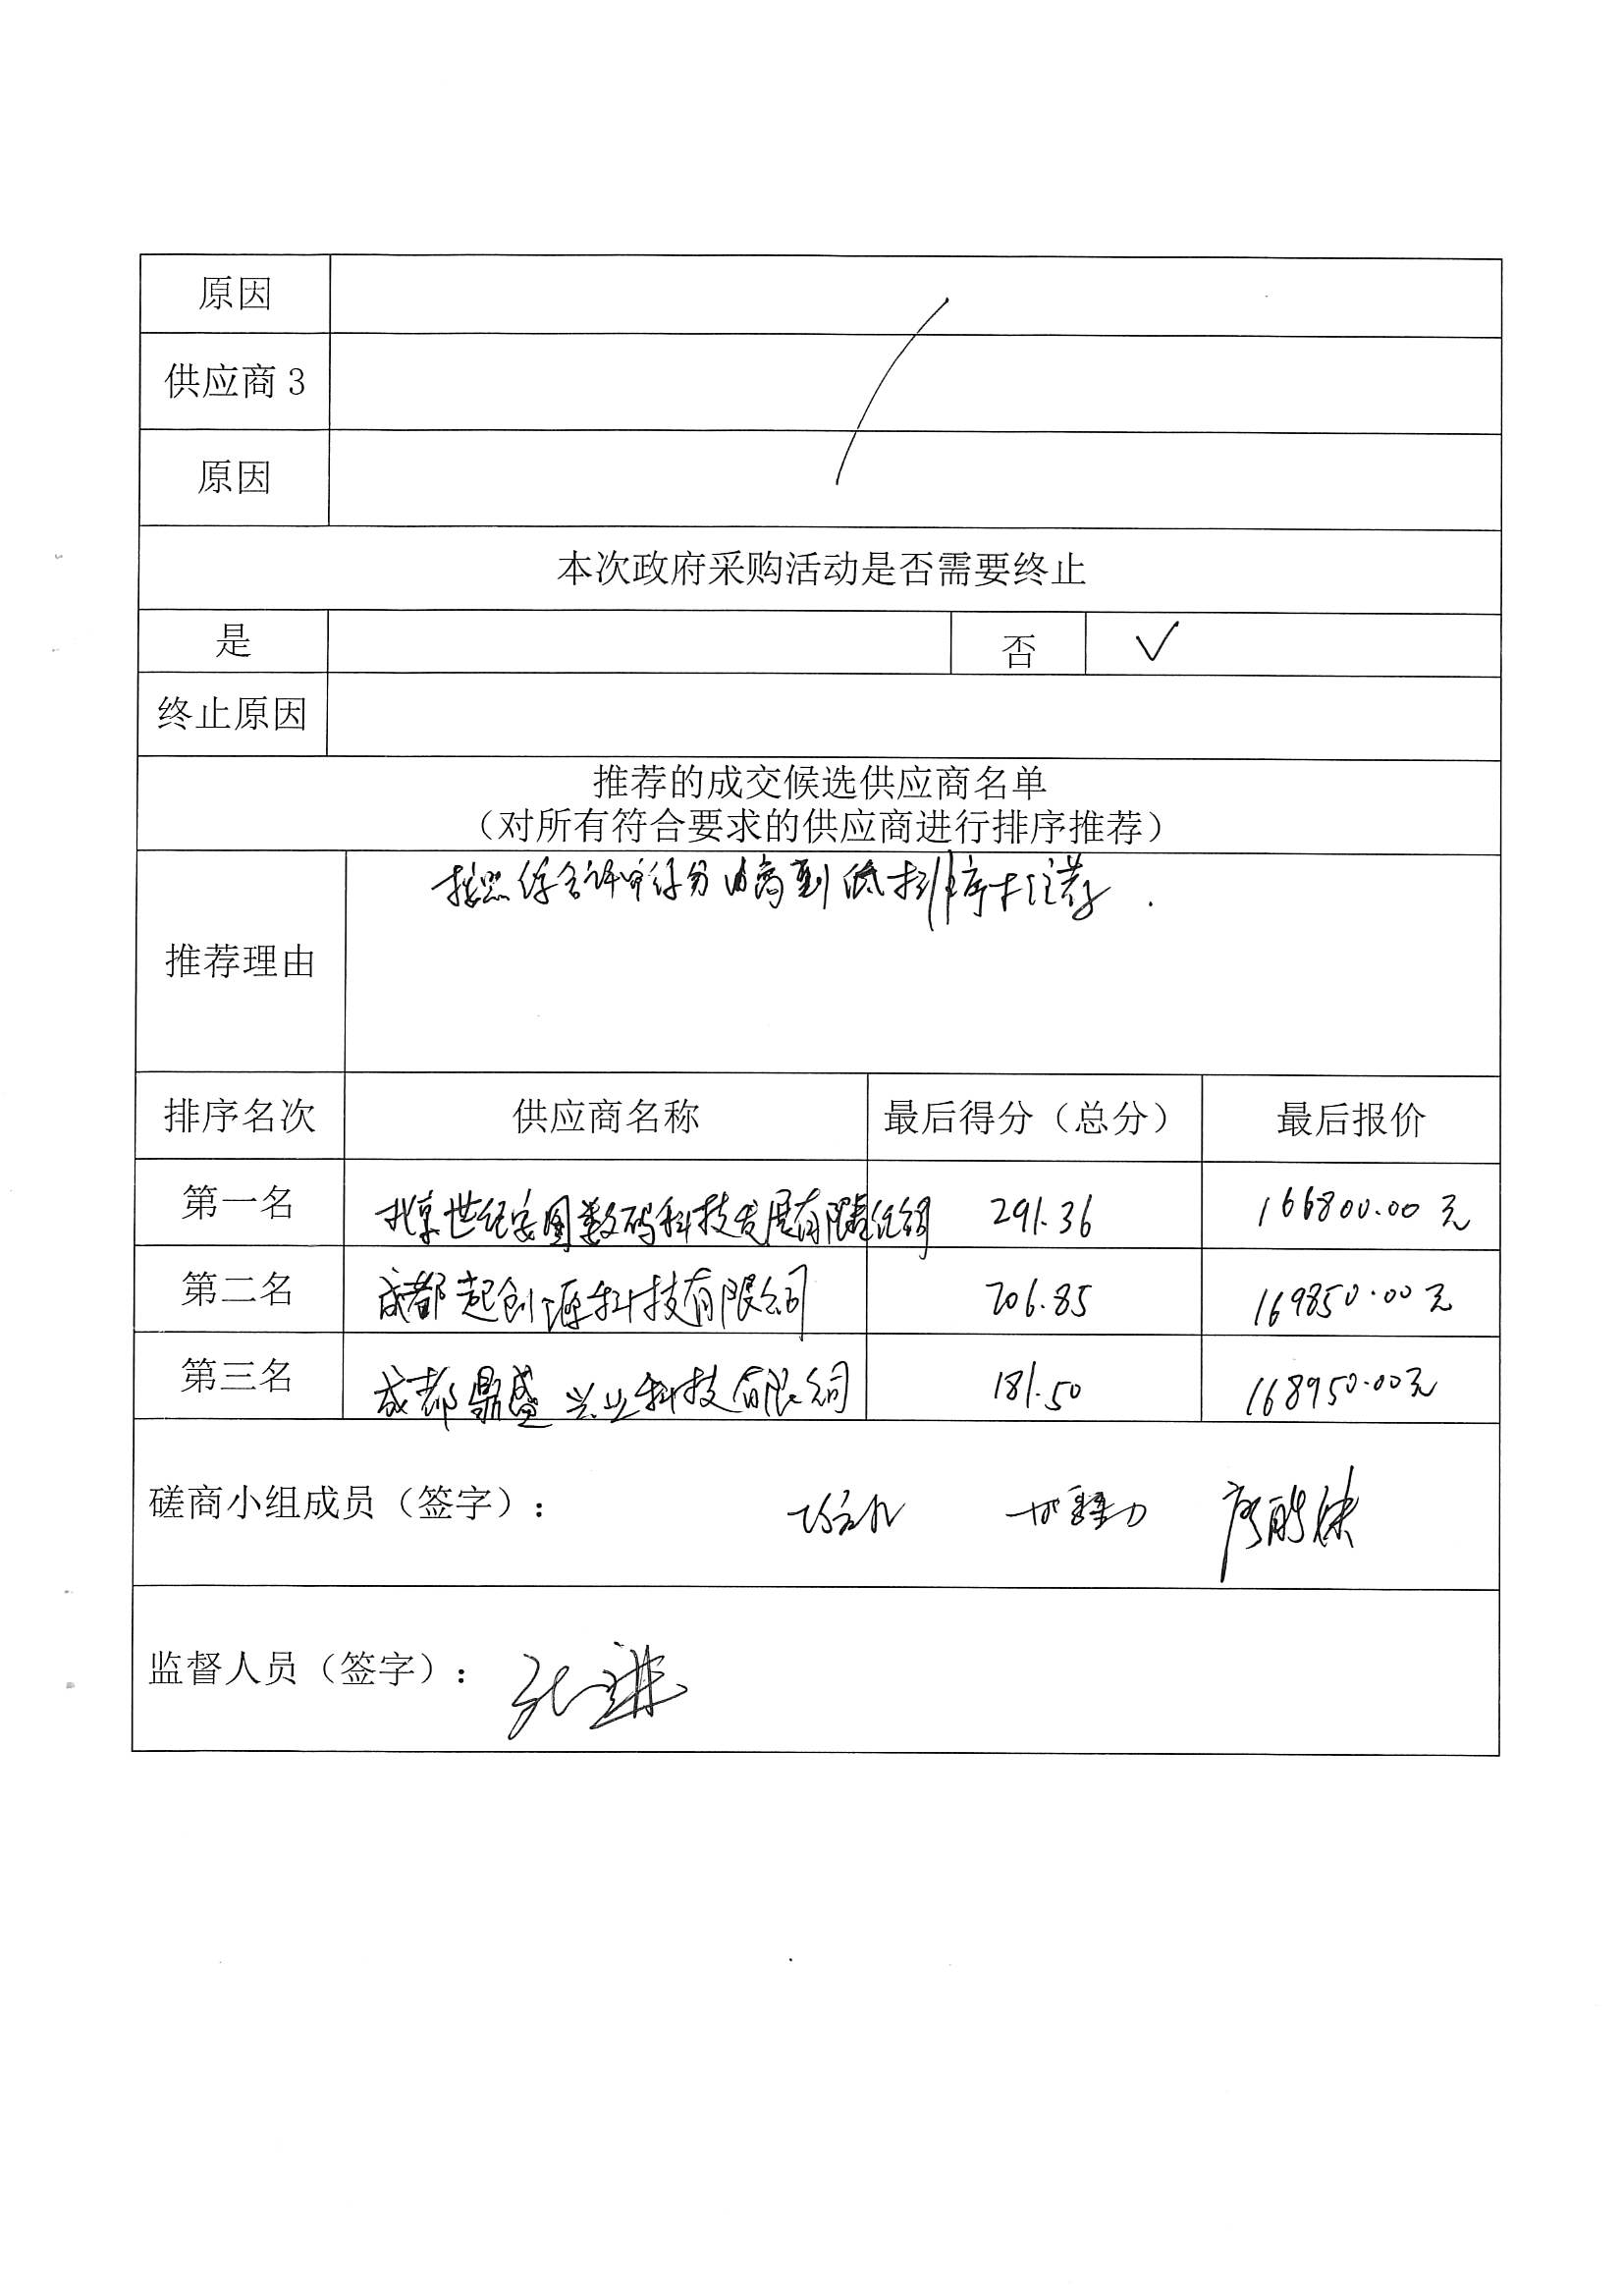 原因
供应商 3
原因
本次政府采购活动是否需要终止
是 否 √
终止原因
推荐的成交候选供应商名单
（对所有符合要求的供应商进行排序推荐）
按照综合评审得分由高到低排序推荐.
推荐理由
排序名次 供应商名称 最后得分（总分） 最后报价
第一名 北京世纪安图数码科技发展有限责任公司 291.36 166800.00元
第二名 成都起创源科技有限公司 206.85 169850.00元
第三名 成都鼎盛兴业科技有限公司 181.50 168950.00元
磋商小组成员（签字）：
监督人员（签字）：